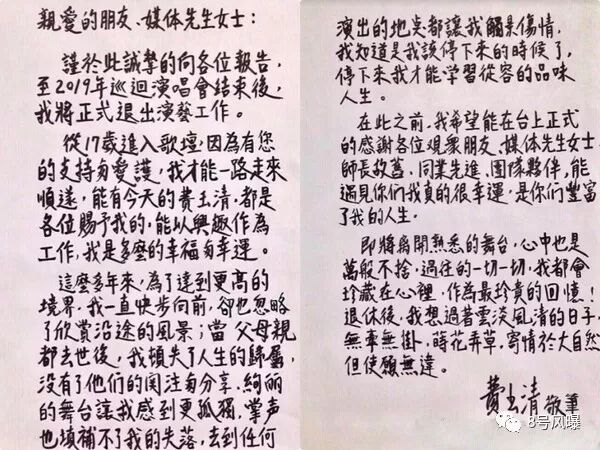 親愛的朋友、媒体先生女士：
謹於此誠摯的向各位報告，
至2019年巡迴演唱會結束後，
我將正式退出演藝工作。
從17歲進入歌壇，因為有您
的支持和愛護，我才能一路走來
順遂，能有今天的費玉清，都是
各位賜予我的，能以興趣作為
工作，我是多麼的幸福和幸運。
這麼多年來，為了達到更高的
境界，我一直快步向前，卻也忽略
了欣賞沿途的風景；當父母親
都去世後，我頓失了人生的歸屬，
沒有了他們的関注和分享，絢麗
的舞台讓我感到更孤獨，掌声
也填補不了我的失落，去到任何
演出的地点都讓我觸景傷情，
我知道是我該停下來的時候了，
停下來我才能學習從容的品味
人生。
在此之前，我希望能在台上正式
的感謝各位观衆朋友、媒体先生女士、
師長故舊、同業先進、團隊夥伴，能
遇見你们我真的很幸運，是你们豐富
了我的人生。
即將離開熟悉的舞台，心中也是
萬般不捨，過往的一切一切，我都會
珍藏在心裡，作為最珍貴的回憶！
退休後，我想過著雲淡風清的日子，
無牽無掛，蒔花弄草，寄情於大自然
但使願無違。
費玉清 敬筆
8号风曝